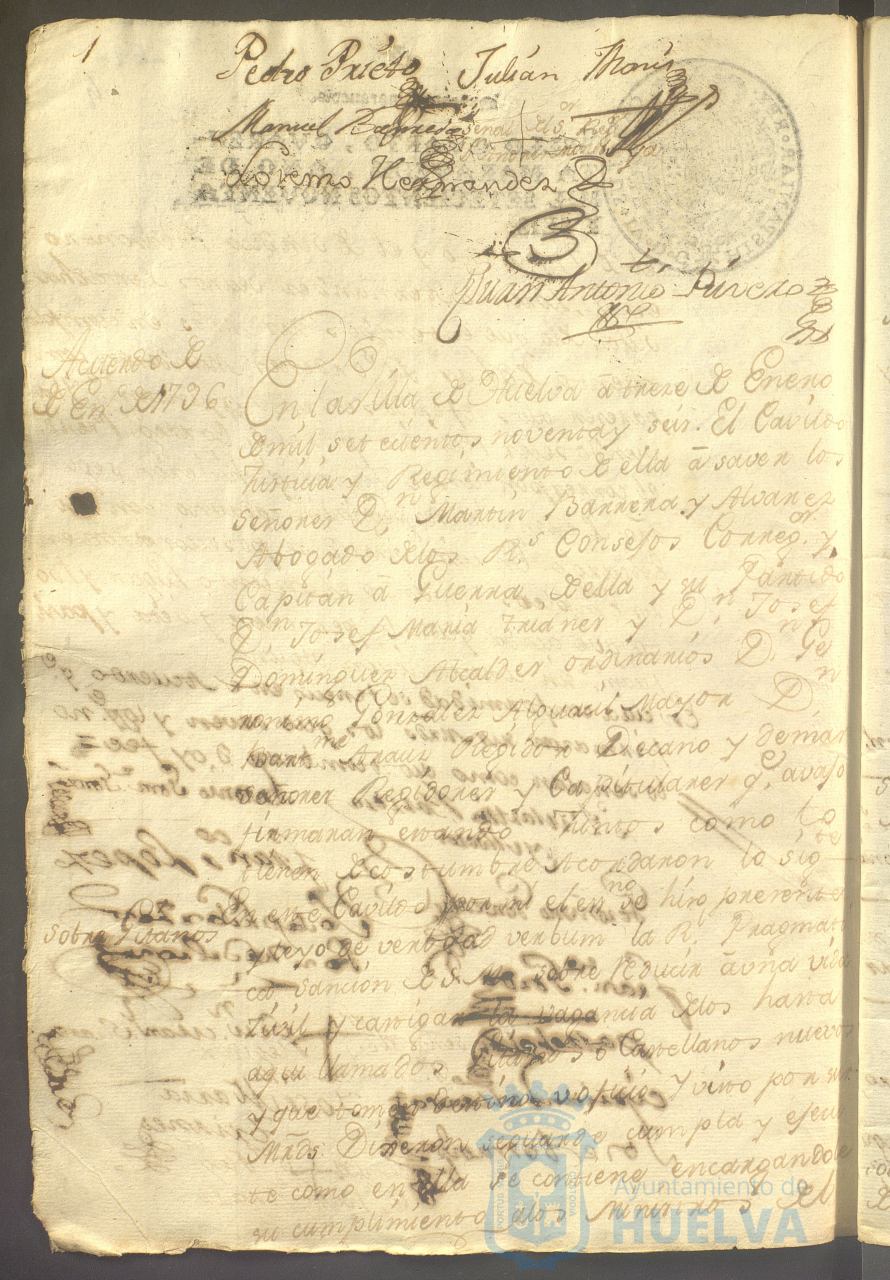 1
Pedro Prieto Julián Marín
Manuel
señal del Sr. Regor
Lorenzo Hernandez
Juan Antonio Rivero
Acuerdo de
de En. de 1796
En la Villa de Huelva á treze de Enero
de mil setecientos noventa y seis. El Cavildo
Justicia y Regimiento de ella á saver los
señores Dn. Martin Barrera y Alvarez
Abogado de los Rs. Consejos Corregor. y
Capitán á Guerra de ella y su Partido
Dn. Josef María Trianes y Dn. Josef
Dominguez Alcaldes ordinarios Dn. Ge
ronimo Gonzalez Alguacil Mayor Dn.
Bartme. Arauz Regidor Decano y demas
señores Regidores y Capitulares qe. avajo
firmaran estando juntos como lo
tienen de costumbre Acordaron lo sigte.
Sobre Jitanos
En este Cavildo por mi el esno. se hizo presente
y leyo de verbo ad verbum la Rl. Pragmati
ca sanción de S. M. sobre reducir á una vida
Zivil y castigar la vagancia de los hasta
aqui llamados Jitanos o Castellanos nuevos
y que tomen destino u oficio y visto por sus
Mrds. Dijeron se guarde cumpla y ejecu
te como en ella se contiene encargandole
su cumplimiento a los Ministros del
Ayuntamiento de
HUELVA